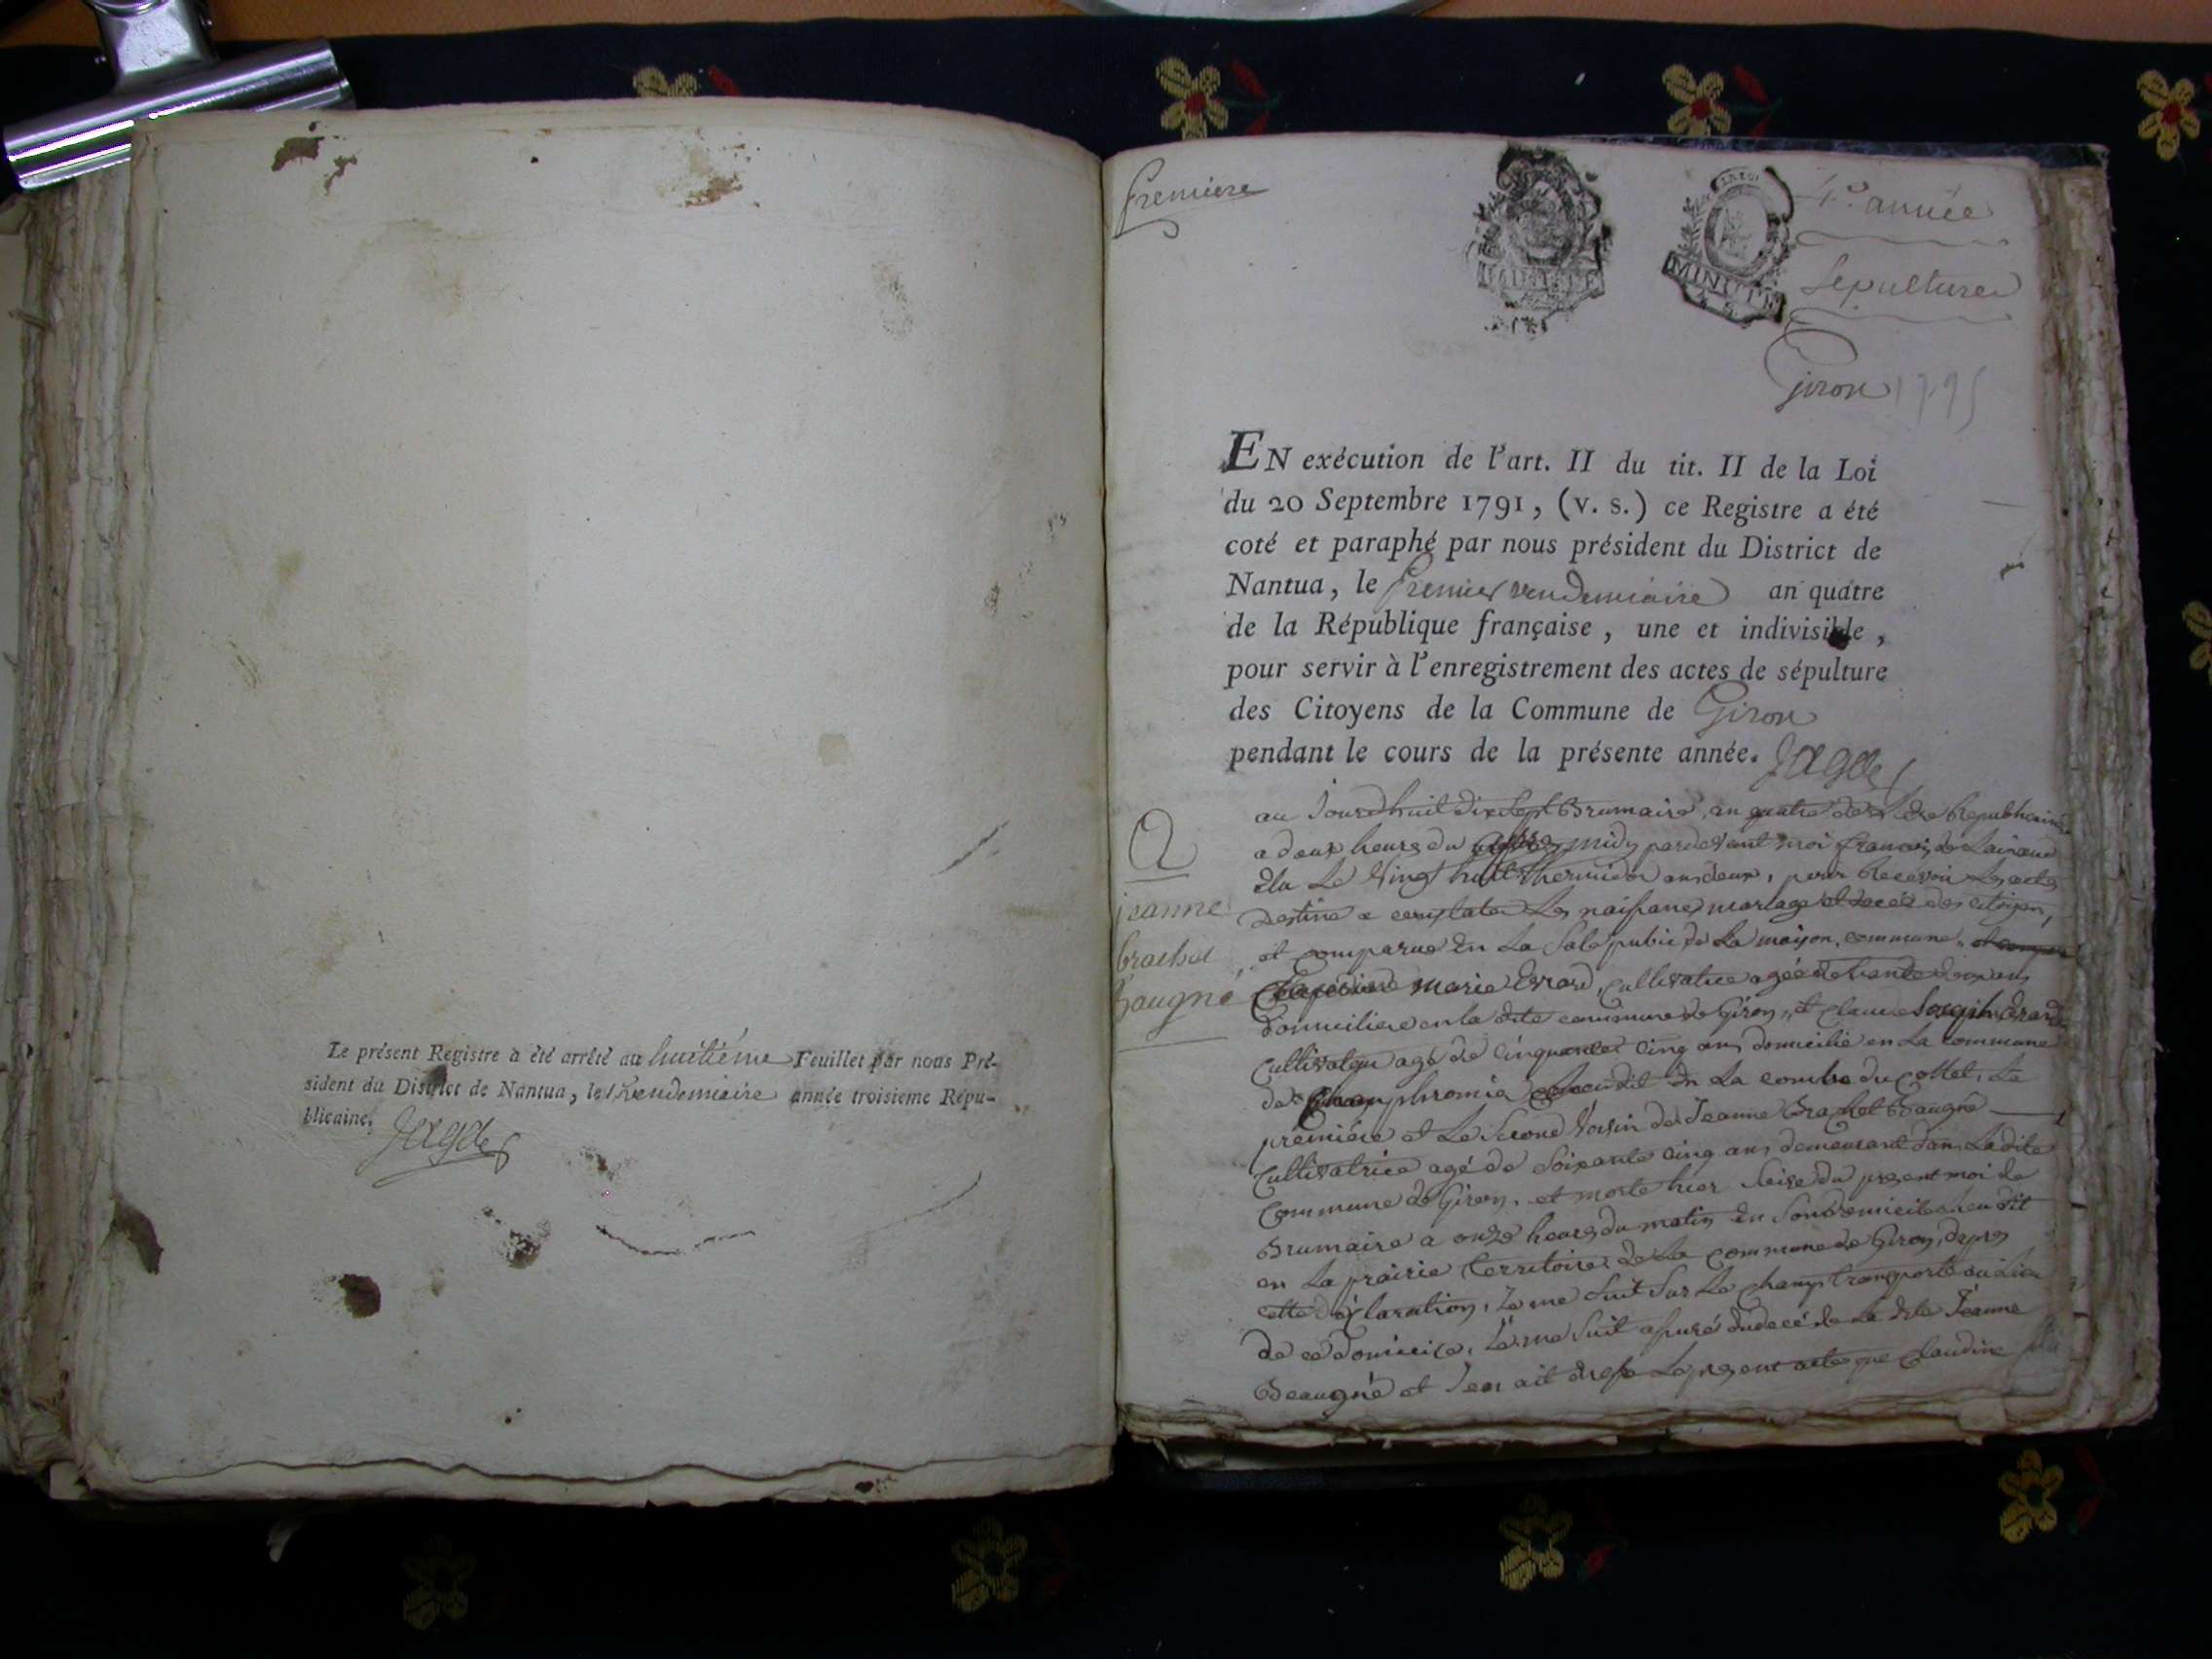 Le présent Registre a été arrêté au huitième Feuillet par nous Pré-
sident du District de Nantua, le 1er vendemiaire année troisieme Répu-
blicaine.
Premiere
MINUTE
4e année
Sepultures
Giron 1795
EN exécution de l'art. II du tit. II de la Loi
du 20 Septembre 1791, (v. s.) ce Registre a été
coté et paraphé par nous président du District de
Nantua, le Premier vendemiaire an quatre
de la République française, une et indivisible,
pour servir à l'enregistrement des actes de sépulture
des Citoyens de la Commune de Giron
pendant le cours de la présente année.
jeanne
brachet
baugné
au Jourdhuit dixsept Brumaire an quatre de Lere Republicaine
a deux heures du apres midy pardevant moi francois
Elu Le vingt huit thermidor an deux, pour Recevoir Les actes
Destine a constater Les naissances mariage et décés des citoyen,
et comparue En La Sale public de La maison commune
marie Evrard, Cultivatrice agée de trente deux ans
domiciliée en la dite commune de Giron, et claude Joseph
Cultivateur agé de Cinquante Cinq ans domicilié en La Commune
de Champfromié Lieu dit En La combe du collet, La
premiére et Le Second Voisin de Jeanne Brachet Baugné
Cultivatrice agé de Soixante cinq ans demeurant dans La dite
Commune de Giron, et morte hier Seize du present moi de
Brumaire a onze heures du matin En Son domicile Lieu dit
en La prairie territoire de La commune de Giron, depres
cette déclaration, Je me Suit Sur Le Champ transporté au Lieu
de ce domicile, Je me Suit assuré du decé de La dite Jeanne
Beaugné et J'en ait dressé Le present acte que Claudine